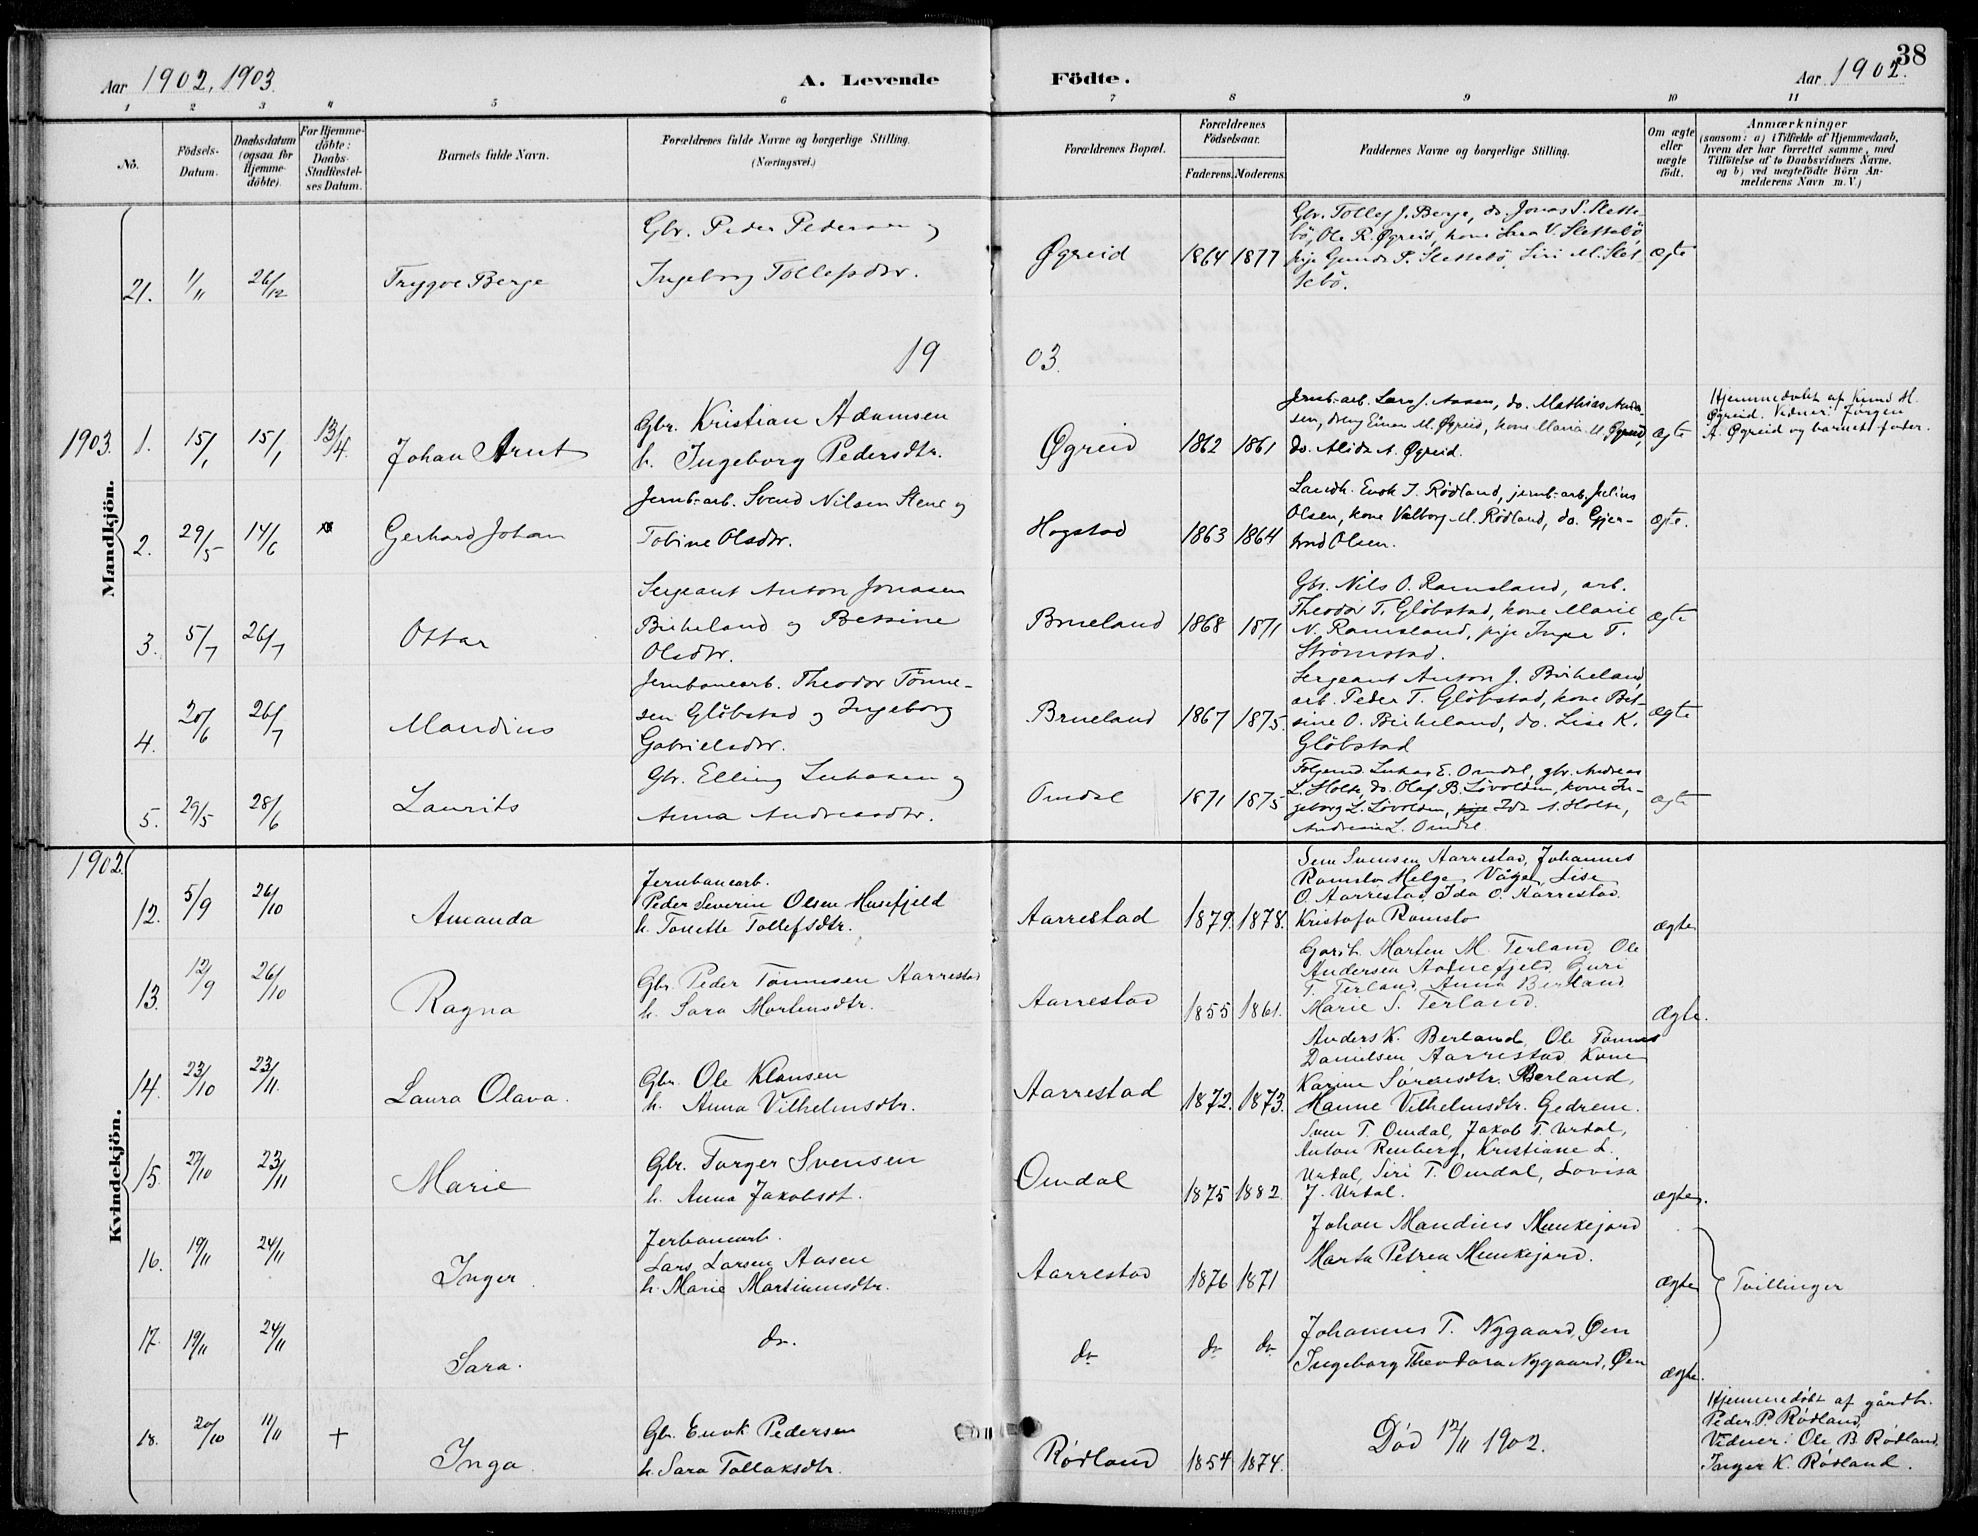 38
Aar 1902, 1903.
A. Levende Födte.
Aar 1902.
1 2 3 4 5 6 7 8 9 10 11
No.
Födsels-Datum.
Daabsdatum (ogsaa for Hjemme-döbte).
For Hjemme-döbte: Daabs-Stadfæstel-ses Datum.
Barnets fulde Navn.
Forældrenes fulde Navne og borgerlige Stilling.
(Næringsvei.)
Forældrenes Bopæl.
Forældrenes Födselsaar.
Faderens. Moderens.
Faddernes Navne og borgerlige Stilling.
Om ægte eller uægte födt.
Anmærkninger
(saasom: a) i Tilfælde af Hjemmedaab,
hvem der har forrettet samme, med
Tilföielse af to Daabsvidners Navne.
og b) ved uægtefödte Börn An-
melderens Navn m. V.)
21. 1/11 26/12 Trygve Berge
Gbr. Peder Pedersen og
Ingeborg Tollefsdtr.
Øgreid 1864 1877
Gbr. Tollef J. Berge, do. Jonas S. Slette-
bö, Ole R. Øgreid, kone Sara V. Slettebö
pige Gunda P. Slettebö, Siri M. Slet-
tebö.
ægte
1903.
1903.
Mandkjön.
1. 15/1 15/1 13/4 Johan Arnt
Gbr. Kristian Adamsen
h. Ingeborg Pedersdtr.
Øgreid 1862 1861
Jernb.arb. Lars J. Aasen, do. Mathias
sen, dreng Einar M. Øgreid, kone Maria M. Øgreid,
do. Alida A. Øgreid.
ægte
Hjemmedöbt af Knud M.
Øgreid. Vidner: Jörgen
A. Øgreid og barnets fader.
2. 29/5 14/6 Gerhard Johan
Jernb.-arb. Svend Nilsen Stene og
Tobine Olsdtr.
Hogstad 1863 1864
Landh. Enok J. Rødland, jernb.-arb. Julius
Olsen, kone Valborg M. Rødland, do. Gjer-
trud Olsen.
ægte.
3. 5/7 26/7 Ottar
Sergeant Anton Jonasen
Birkeland og Betsine
Olsdtr.
Brueland 1868 1871
Gbr. Nils O. Ramsland, arb.
Theodor T. Glöbstad, kone Marie
N. Ramsland, pige Inga T.
Strömstad.
ægte
4. 20/6 26/7 Mandius
Jernbanearb. Theodor Tönne-
sen Glöbstad og Ingeborg
Gabrielsdtr.
Brueland 1867 1875.
Sergeant Anton J. Birkeland
arb. Peder T. Glöbstad, kone Bet-
sine O. Birkeland, do. Lise K.
Glöbstad
ægte
5. 29/5 28/6 Laurits
Gbr. Elling Lukasen og
Anna Andreasdtr.
Omdal 1871 1875
Folgemd. Lukas E. Omdal, gbr. Andreas
L. Holte, do. Olaf B. Lövolden, kone In-
geborg L. Lövolden, pige Ida A. Holte,
Andreas L. Omdal.
ægte
1902.
Kvindekjön.
12. 5/9 26/10 Amanda
Jernbanearb.
Peder Severin Olsen Husefjeld
h. Tonette Tollefsdtr.
Aarrestad 1879. 1878.
Sem Svensen Aarrestad, Johannes
Romslo Helge Vågen, Lise
O. Aarrestad, Ida O. Aarrestad.
Kristofa Romslo
ægte
13. 12/9 26/10 Ragna
Gbr. Peder Tönnesen Aarrestad
h. Sara Mortensdtr.
Aarrestad 1855 1861.
Gårdb. Marten M. Terland, Ole
Andersen, Guri
T. Terland, Anna Berland
Marie S. Terland.
Ægte.
14. 23/10 23/11. Laura Olava.
Gbr. Ole Klausen
h. Anna Vilhelmsdtr.
Aarrestad 1872. 1873.
Anders K. Berland, Ole Tönnes
Danielsen Aarrestad, Kone
Karine Sörensdtr. Berland,
Hanne Vilhelmsdtr. Gedrem.
15. 27/10 23/11 Marie
Gbr. Torger Svensen
h. Anna Jakobsdt.
Omdal 1875 1882.
Sven T. Omdal, Jakob T. Urdal,
Anton Renberg, Kristiane L.
Urdal, Siri T. Omdal, Lovisa
J. Urdal.
ægte.
16. 19/11 24/11 Inger
Jerbanearb.
Lars Larsen Aasen
h. Marie Martinusdtr.
Aarrestad 1876 1871
Johan Mandius Munkejord
Marta Petrea Munkejord.
ægte
Tvillinger
17. 19/11 24/11 Sara.
do. do do do.
Johannes T. Nygaard, Øen
Ingeborg Theodora Nygaard, Øen
ægte.
18. 20/10 11/11 + Inga
Gbr. Enok Pedersen
h. Sara Tollaksdtr.
Rødland 1854 1874.
Död 12/11 1902.
Hjemmedøbt af gårdbr.
Peder P. Rødland,
Vidner: Ole B. Rødland,
Torger K. Rødland.